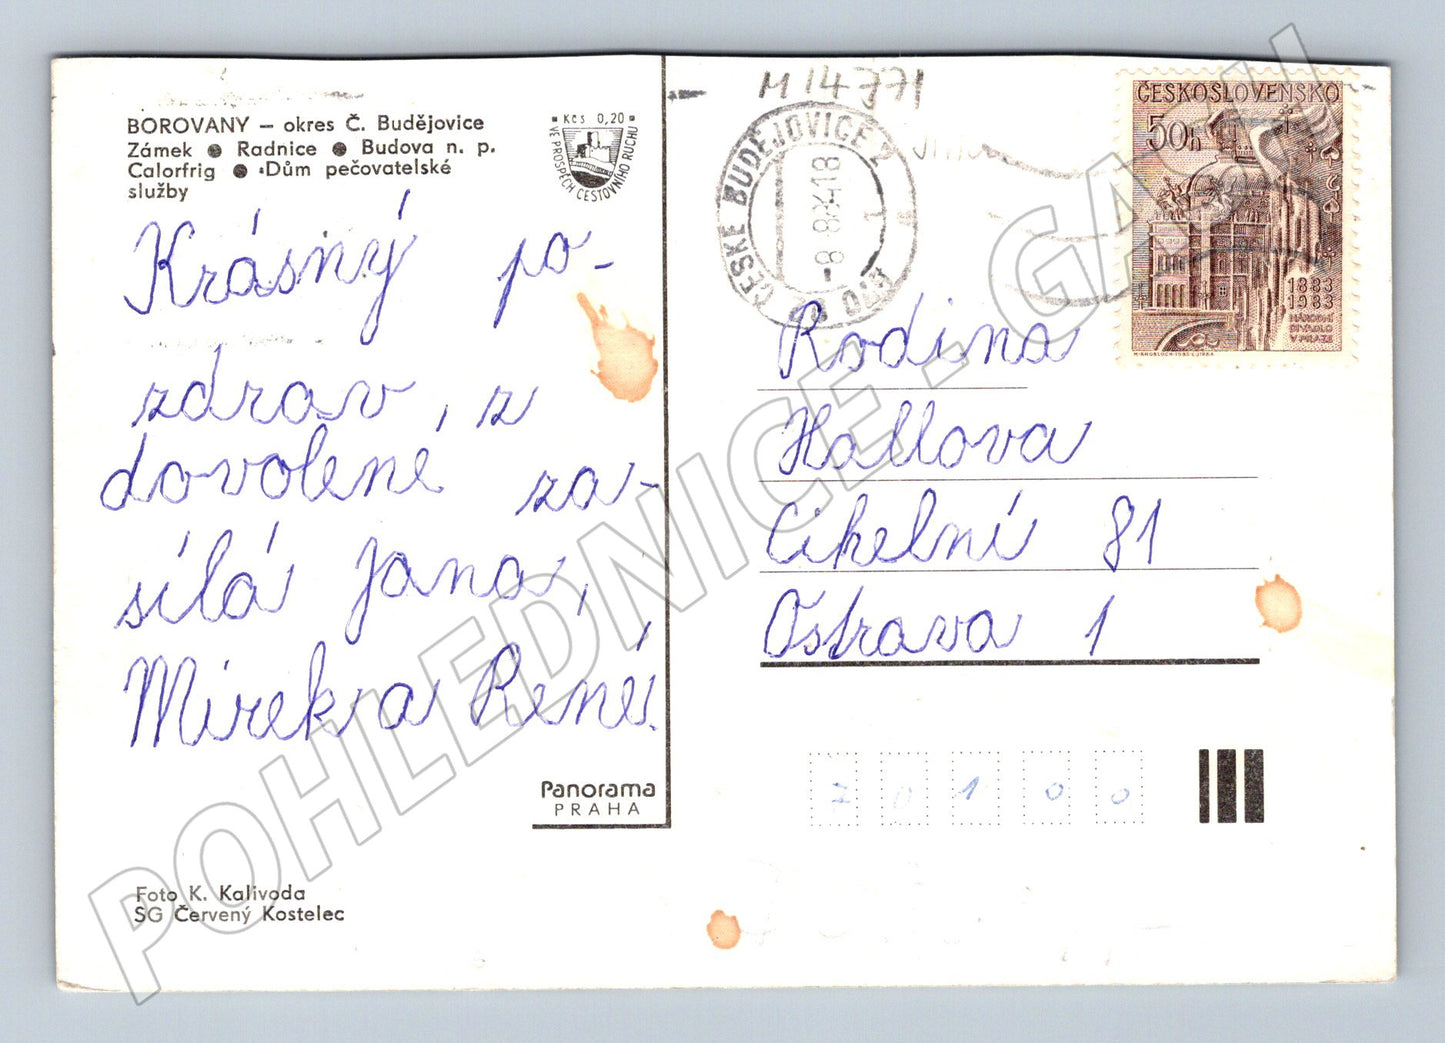 BOROVANY – okres Č. Budějovice
Zámek ● Radnice ● Budova n. p.
Calorfrig ● Dům pečovatelské
služby
Kčs 0,20
VE PROSPĚCH CESTOVNÍHO RUCHU
Krásný po-
zdrav, z
dovolené za-
sílá Jana,
Mirek a René.
Panorama
PRAHA
Foto K. Kalivoda
SG Červený Kostelec
M 14771
ČESKÉ BUDĚJOVICE 2
-8.8.84-18
ČESKOSLOVENSKO
50h
1883
1983
NÁRODNÍ
DIVADLO
V PRAZE
Rodina
Hallova
Cihelní 81
Ostrava 1
70100
POHLEDNICE - GASU